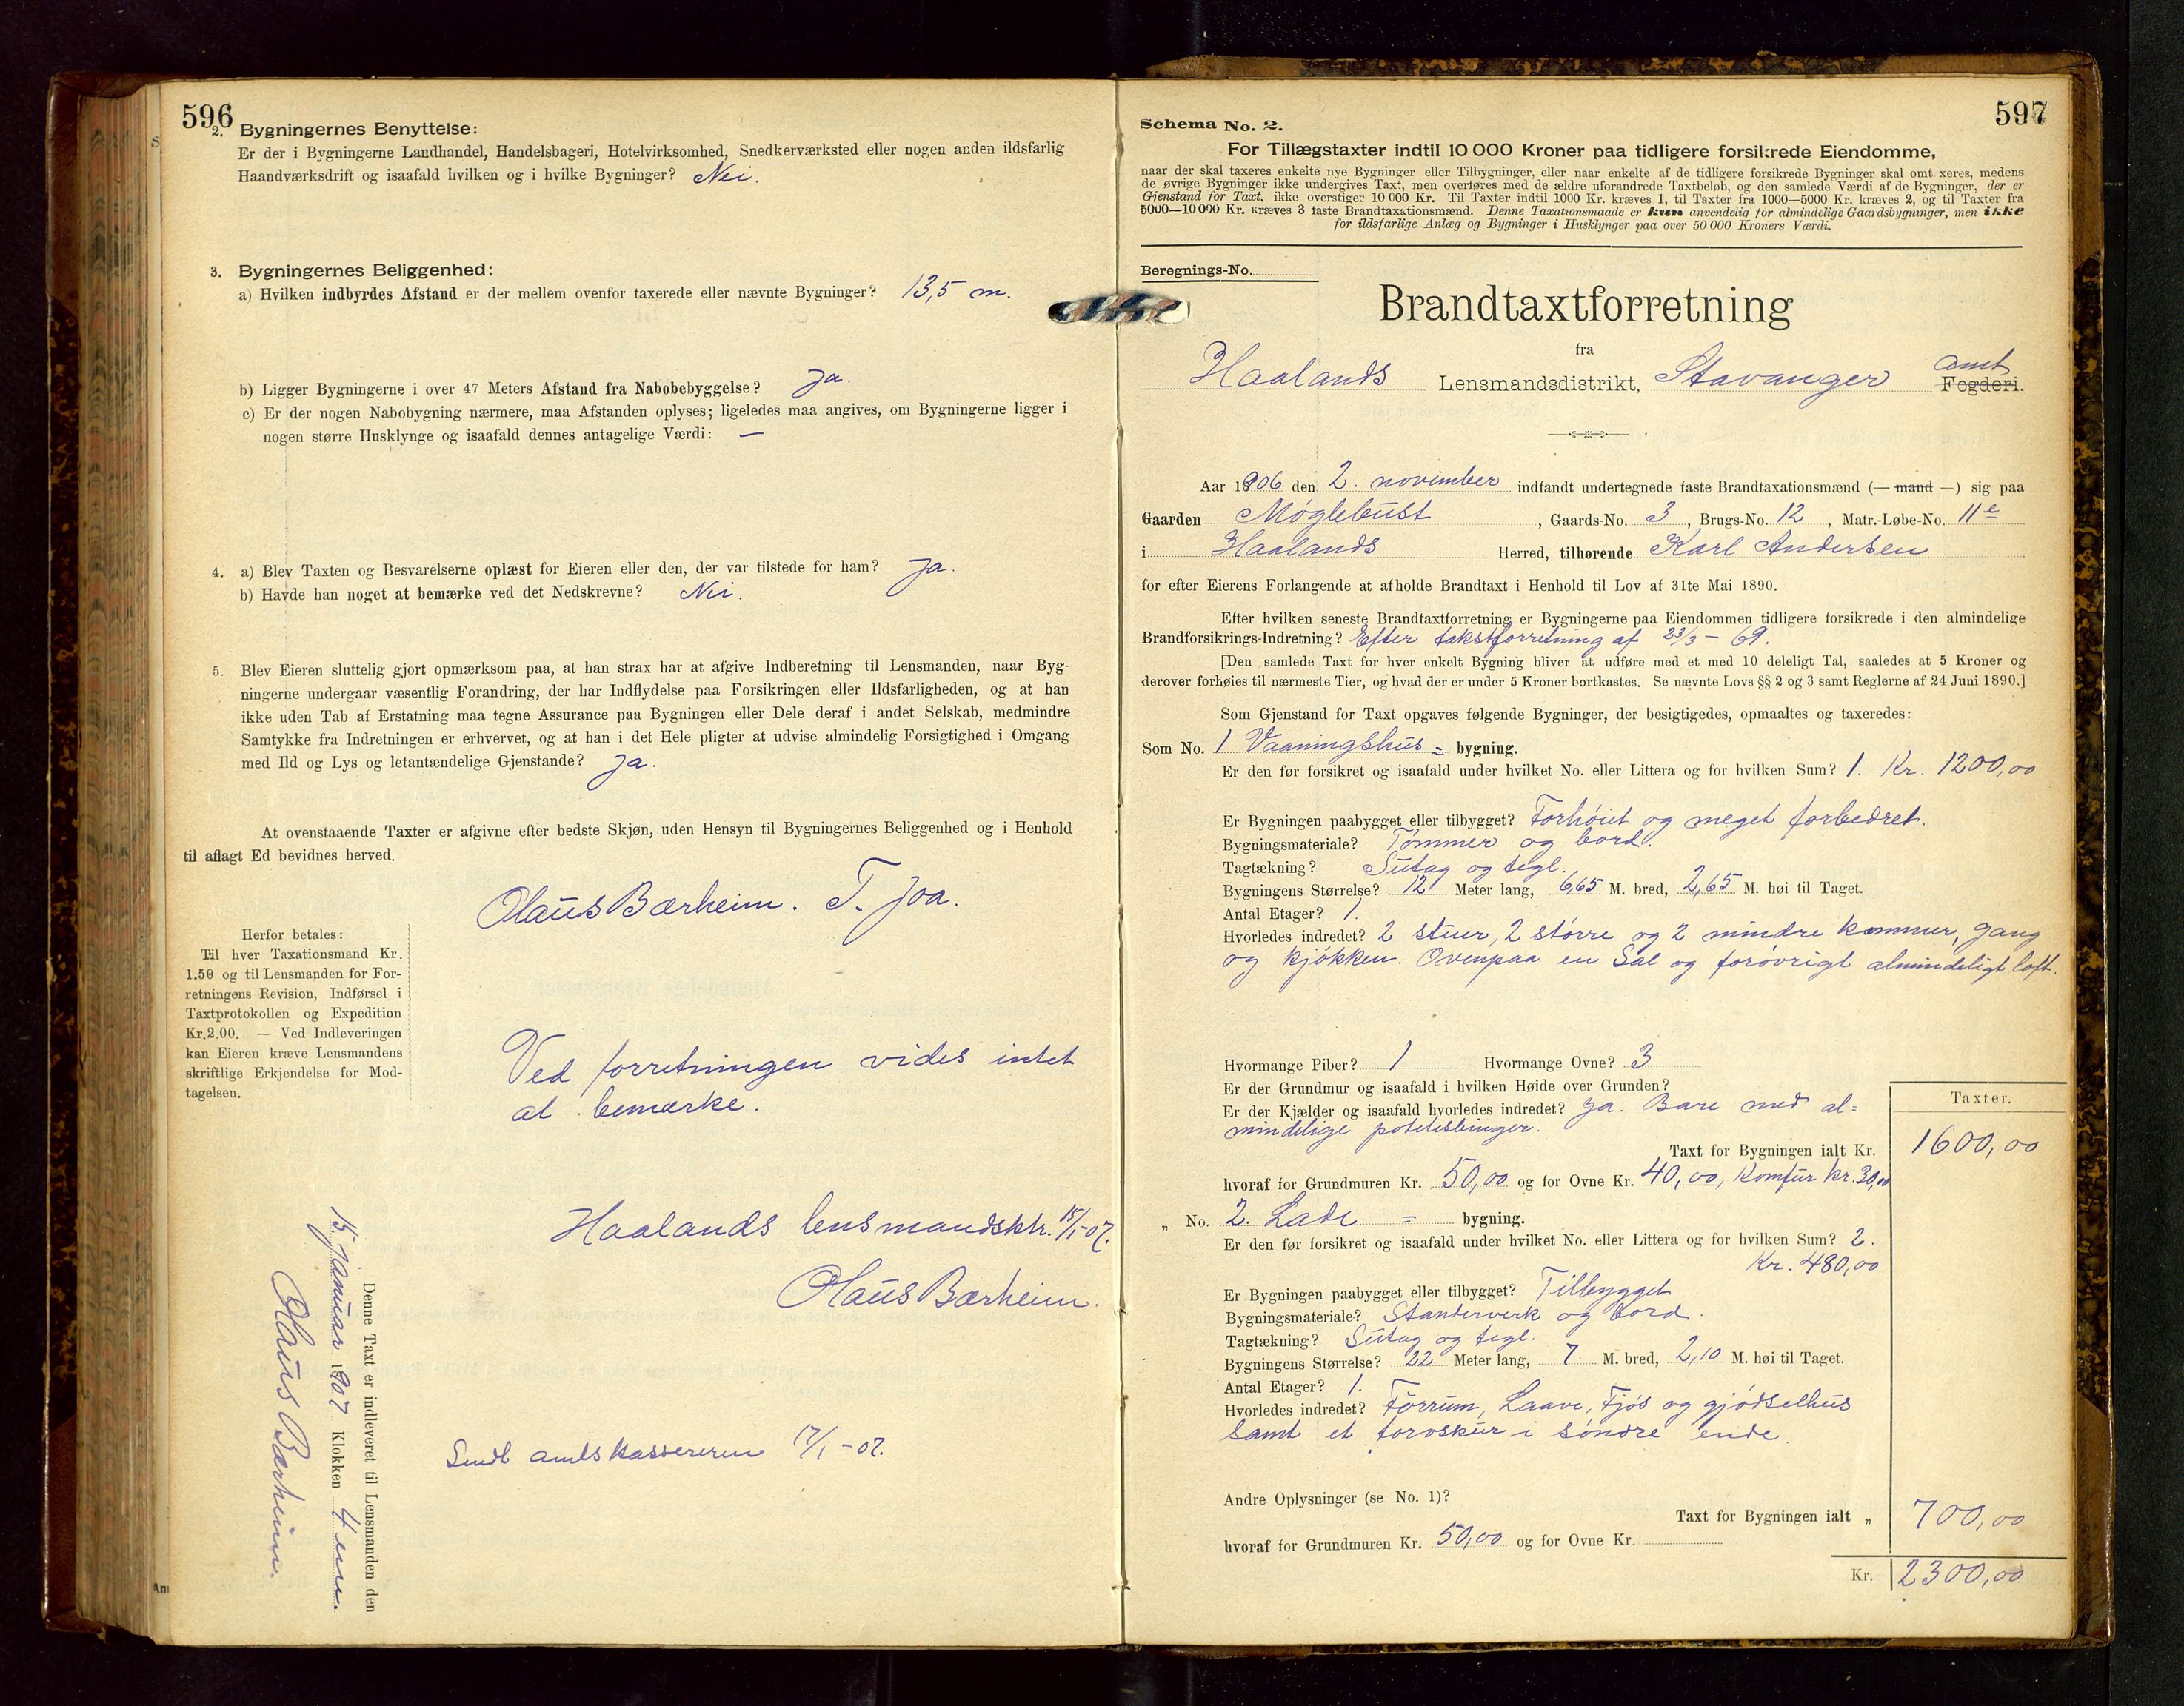 596
2. Bygningernes Benyttelse:
Er der i Bygningerne Landhandel, Handelsbageri, Hotelvirksomhed, Snedkerværksted eller nogen anden ildsfarlig
Haandværksdrift og isaafald hvilken og i hvilke Bygninger? Nei.
3. Bygningernes Beliggenhed:
a) Hvilken indbyrdes Afstand er der mellem ovenfor taxerede eller nævnte Bygninger? 13,5 m.
b) Ligger Bygningerne i over 47 Meters Afstand fra Nabobebyggelse? Ja.
c) Er der nogen Nabobygning nærmere, maa Afstanden oplyses; ligeledes maa angives, om Bygningerne ligger i
nogen større Husklynge og isaafald dennes antagelige Værdi: —
4. a) Blev Taxten og Besvarelserne oplæst for Eieren eller den, der var tilstede for ham? Ja.
b) Havde han noget at bemærke ved det Nedskrevne? Nei.
5. Blev Eieren sluttelig gjort opmærksom paa, at han strax har at afgive Indberetning til Lensmanden, naar Byg-
ningerne undergaar væsentlig Forandring, der har Indflydelse paa Forsikringen eller Ildsfarligheden, og at han
ikke uden Tab af Erstatning maa tegne Assurance paa Bygningen eller Dele deraf i andet Selskab, medmindre
Samtykke fra Indretningen er erhvervet, og at han i det Hele pligter at udvise almindelig Forsigtighed i Omgang
med Ild og Lys og letantændelige Gjenstande? Ja.
At ovenstaaende Taxter er afgivne efter bedste Skjøn, uden Hensyn til Bygningernes Beliggenhed og i Henhold
til aflagt Ed bevidnes herved.
Olaus Bærheim. T. Joa.
Herfor betales:
Til hver Taxationsmand Kr.
1.50 og til Lensmanden for For-
retningens Revision, Indførsel i
Taxtprotokollen og Expedition
Kr. 2.00. — Ved Indleveringen
kan Eieren kræve Lensmandens
skriftlige Erkjendelse for Mod-
tagelsen.
Ved forretningen vides intet
at bemærke.
Haalands lensmandsktr. 15/1-07.
Olaus Bærheim.
Sendt amtskassereren 17/1-07.
Denne Taxt er indleveret til Lensmanden den
15 januar 1907 Klokken 4 em.
Olaus Bærheim.
597
Schema No. 2.
For Tillægstaxter indtil 10 000 Kroner paa tidligere forsikrede Eiendomme,
naar der skal taxeres enkelte nye Bygninger eller Tilbygninger, eller naar enkelte af de tidligere forsikrede Bygninger skal omt xeres, medens
de øvrige Bygninger ikke undergives Taxt, men overføres med de ældre uforandrede Taxtbeløb, og den samlede Værdi af de Bygninger, der er
Gjenstand for Taxt, ikke overstiger 10 000 Kr. Til Taxter indtil 1000 Kr. kræves 1, til Taxter fra 1000—5000 Kr. kræves 2, og til Taxter fra
5000—10 000 Kr. kræves 3 faste Brandtaxationsmænd. Denne Taxationsmaade er kun anvendelig for almindelige Gaardsbygninger, men ikke
for ildsfarlige Anlæg og Bygninger i Husklynger paa over 50 000 Kroners Værdi.
Beregnings-No.
Brandtaxtforretning
fra
Haalands Lensmandsdistrikt, Stavanger amt Fogderi.
Aar 1906 den 2. november indfandt undertegnede faste Brandtaxationsmænd (— mand —) sig paa
Gaarden Møglebust, Gaards-No. 3, Brugs-No. 12, Matr.-Løbe-No. 11e
i Haalands Herred, tilhørende Karl Andersen
for efter Eierens Forlangende at afholde Brandtaxt i Henhold til Lov af 31te Mai 1890.
Efter hvilken seneste Brandtaxtforretning er Bygningerne paa Eiendommen tidligere forsikrede i den almindelige
Brandforsikrings-Indretning? Efter takstforretning af 23/3 - 69.
[Den samlede Taxt for hver enkelt Bygning bliver at udføre med et med 10 deleligt Tal, saaledes at 5 Kroner og
derover forhøies til nærmeste Tier, og hvad der er under 5 Kroner bortkastes. Se nævnte Lovs §§ 2 og 3 samt Reglerne af 24 Juni 1890.]
Som Gjenstand for Taxt opgaves følgende Bygninger, der besigtigedes, opmaaltes og taxeredes:
Som No. 1 Vaaningshus = bygning.
Er den før forsikret og isaafald under hvilket No. eller Littera og for hvilken Sum? 1. Kr. 1200,00
Er Bygningen paabygget eller tilbygget? Forhøiet og meget forbedret.
Bygningsmateriale? Tømmer og bord.
Tagtækning? Sutag og tegl.
Bygningens Størrelse? 12 Meter lang, 6,65 M. bred, 2,65 M. høi til Taget.
Antal Etager? 1.
Hvorledes indredet? 2 stuer, 2 større og 2 mindre kammer, gang
og kjøkken. Ovenpaa en Sal og forøvrigt almindeligt loft.
Hvormange Piber? 1 Hvormange Ovne? 3
Er der Grundmur og isaafald i hvilken Høide over Grunden?
Er der Kjælder og isaafald hvorledes indredet? Ja. Bare med al=
mindelige potetesbinger.
Taxter.
Taxt for Bygningen ialt Kr. 1600,00
hvoraf for Grundmuren Kr. 50,00 og for Ovne Kr. 40,00, Komfur kr. 30,00
„ No. 2. Lade = bygning.
Er den før forsikret og isaafald under hvilket No. eller Littera og for hvilken Sum? 2.
Kr. 480,00
Er Bygningen paabygget eller tilbygget? Tilbygget
Bygningsmateriale? Standerverk og bord.
Tagtækning? Sutag og tegl.
Bygningens Størrelse? 22 Meter lang, 7 M. bred, 2,10 M. høi til Taget.
Antal Etager? 1.
Hvorledes indredet? Forrum, Laave, Fjøs og gjødselhus
samt et torvskur i søndre ende
Andre Oplysninger (se No. 1)?
Taxt for Bygningen ialt „ 700,00
hvoraf for Grundmuren Kr. 50,00 og for Ovne Kr.
Kr. 2300,00